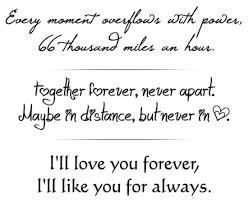 Every moment overflows with power,
66 thousand miles an hour.
together forever, never apart.
Maybe in distance, but never in ♡.
I'll love you forever,
I'll like you for always.